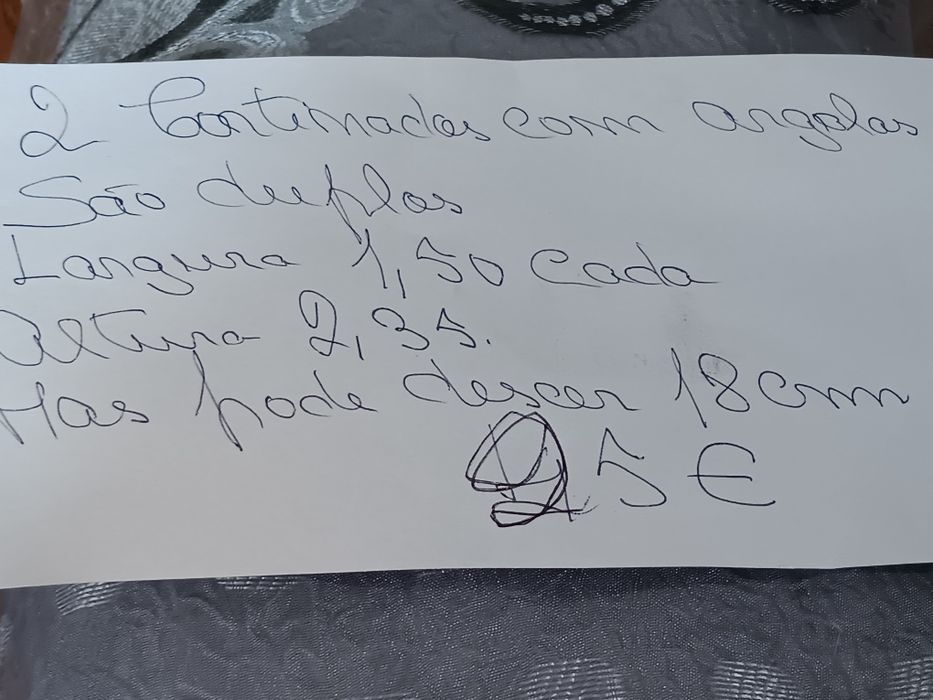 2 Cortinados com argolas
São duplas
Largura 1,50 cada
Altura 2,35.
Mas pode descer 18 cm
25 €